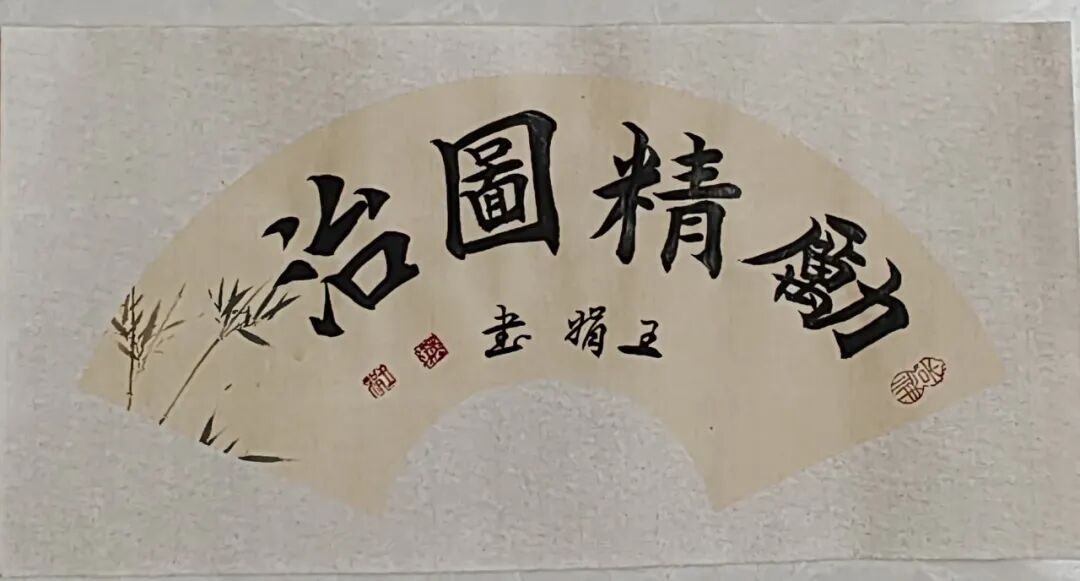 勵精圖治
王娟書